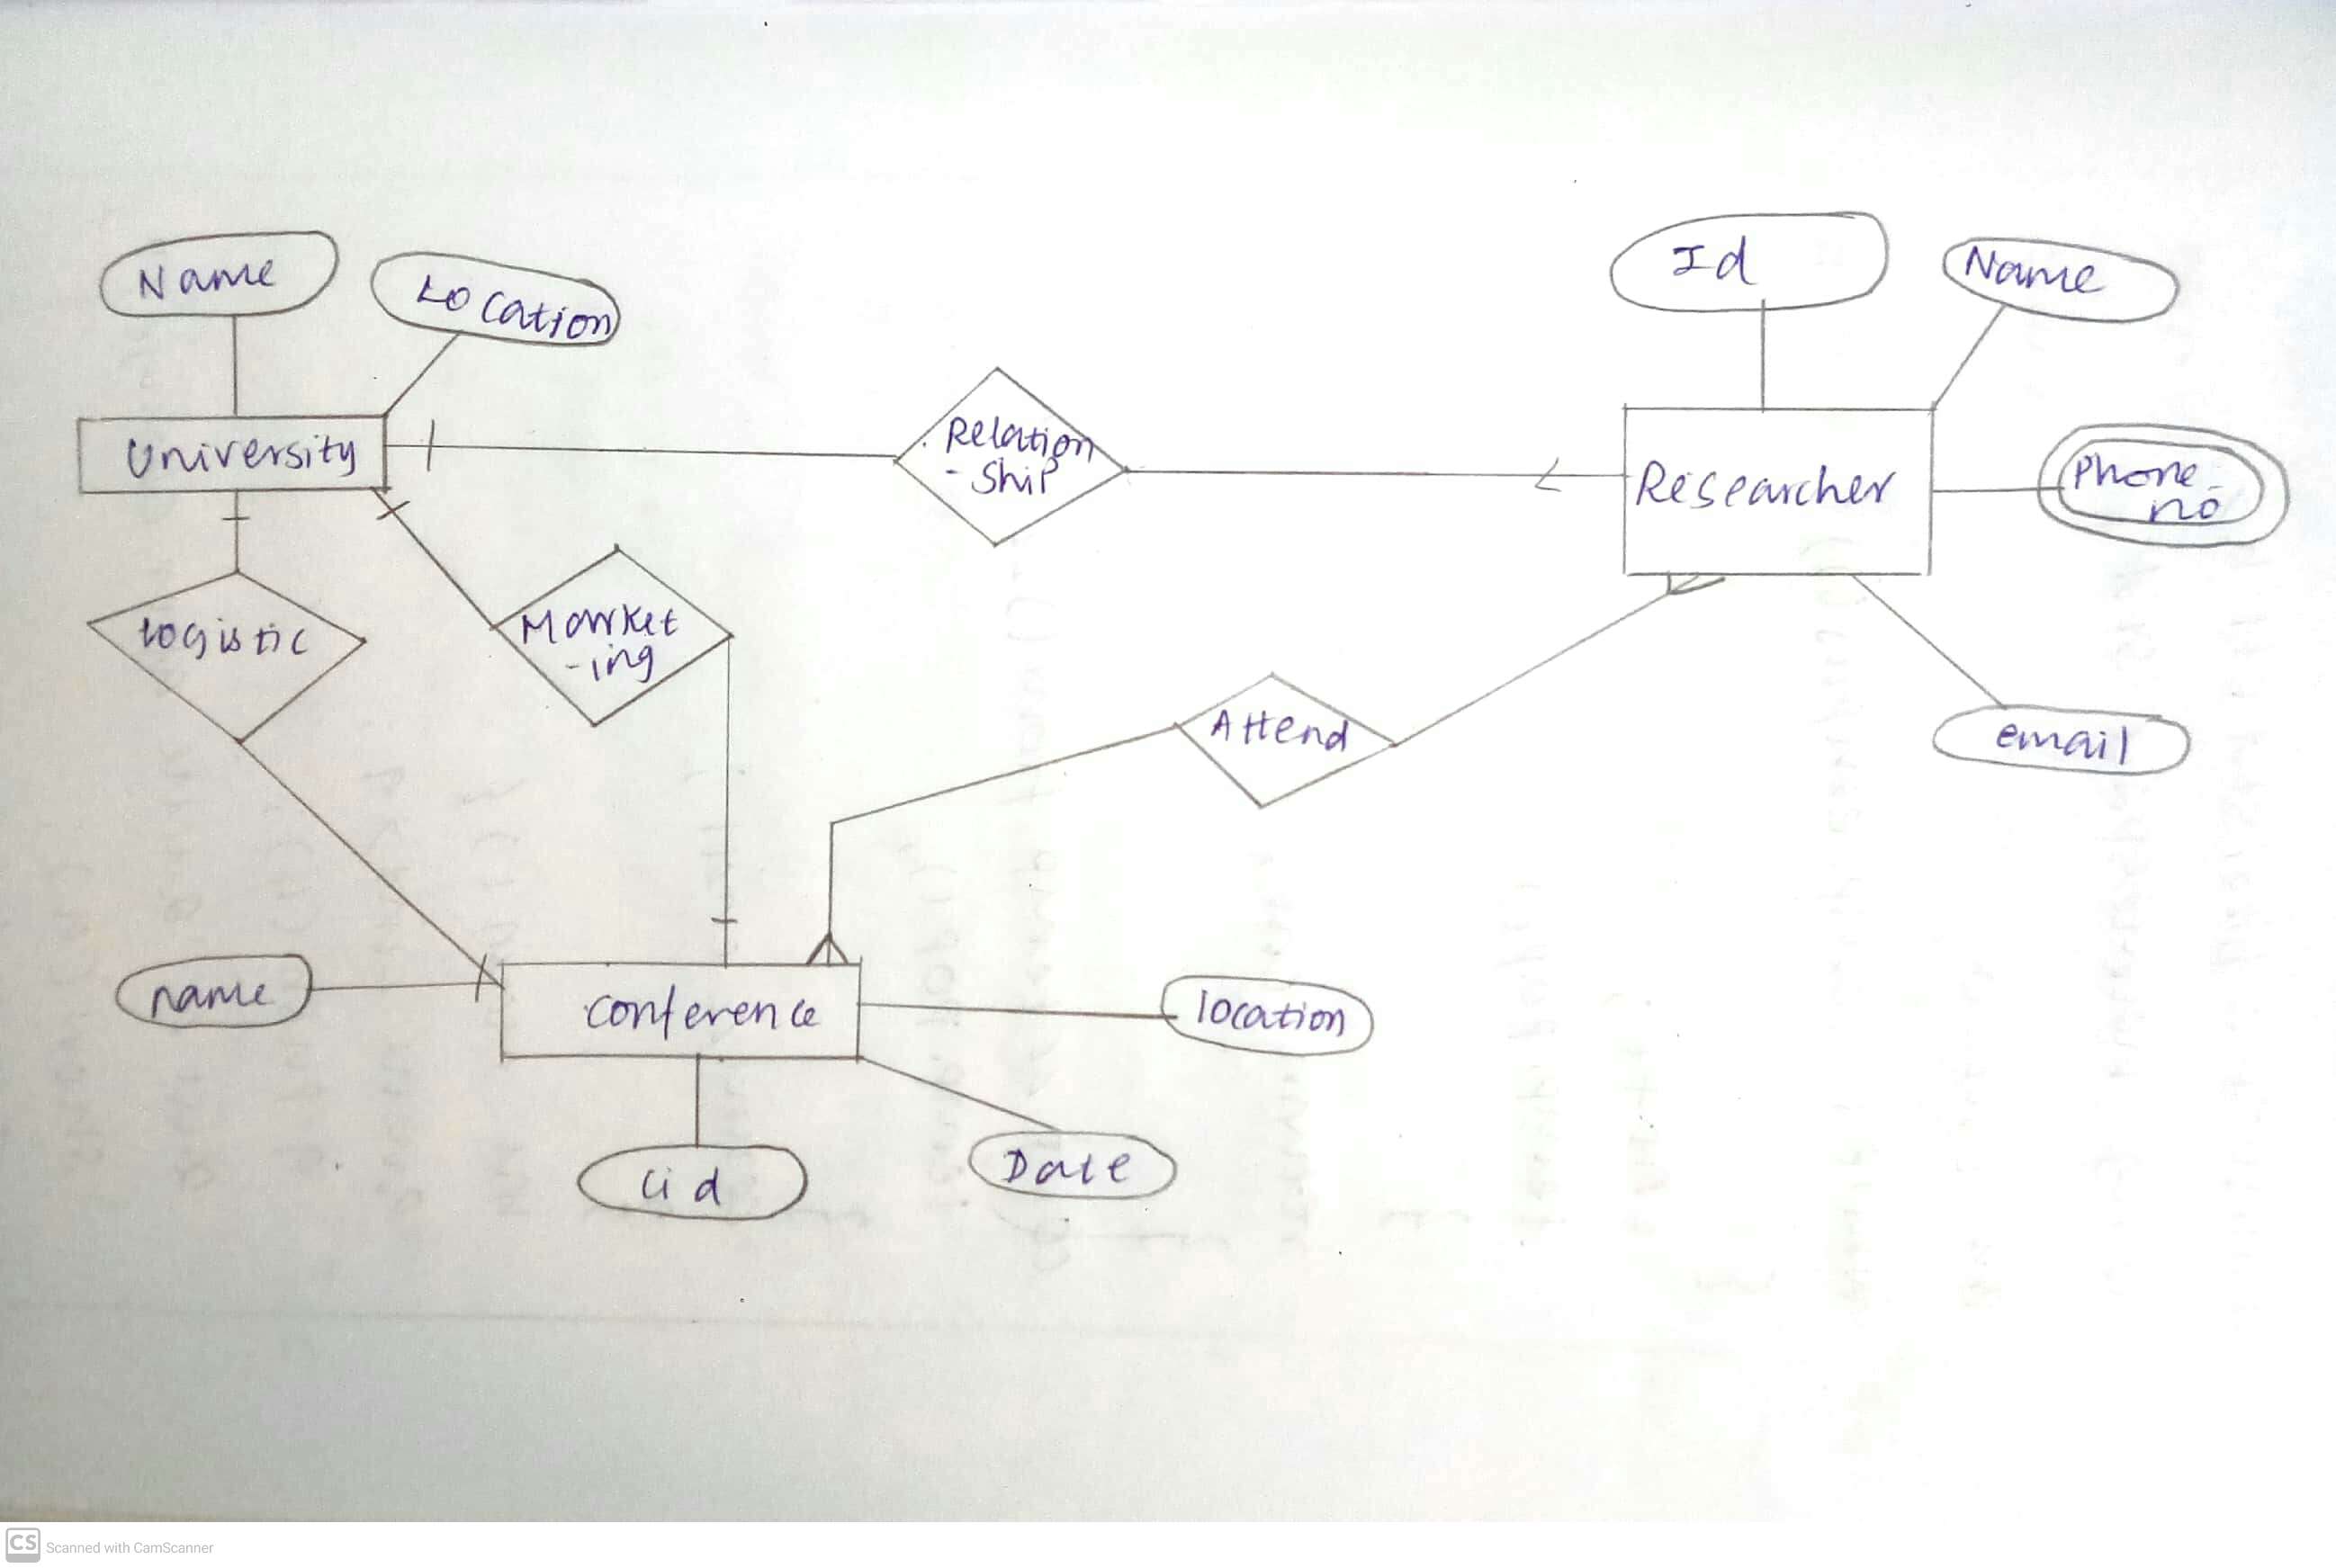 Name
Location
Id
Name
University
Relation
- Ship
Researcher
Phone -
no
Logistic
Market
-ing
Attend
email
name
conference
location
Cid
Date
CS Scanned with CamScanner